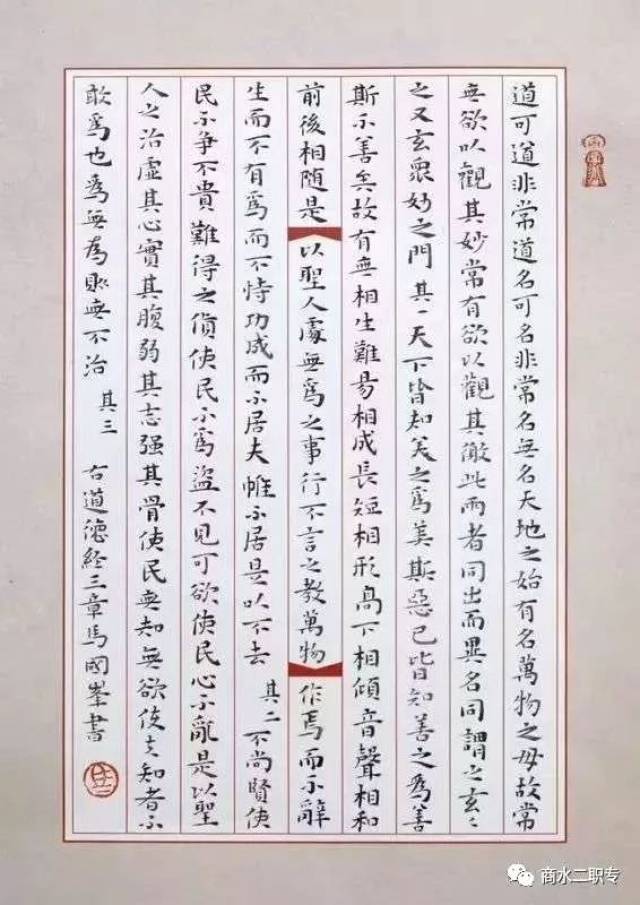 道可道非常道名可名非常名無名天地之始有名萬物之母故常
無欲以觀其妙常有欲以觀其徼此兩者同出而異名同謂之玄〻
之又玄眾妙之門 其一 天下皆知美之爲美斯惡已皆知善之爲善
斯不善矣故有無相生難易相成長短相形高下相傾音聲相和
前後相隨是以聖人處無爲之事行不言之教萬物作焉而不辭
生而不有爲而不恃功成而不居夫惟不居是以不去 其二 不尚賢使
民不爭不貴難得之貨使民不爲盜不見可欲使民心不亂是以聖
人之治虛其心實其腹弱其志强其骨使民無知無欲使夫知者不
敢爲也爲無爲則無不治 其三 古道德經三章馬國峯書
商水二职专